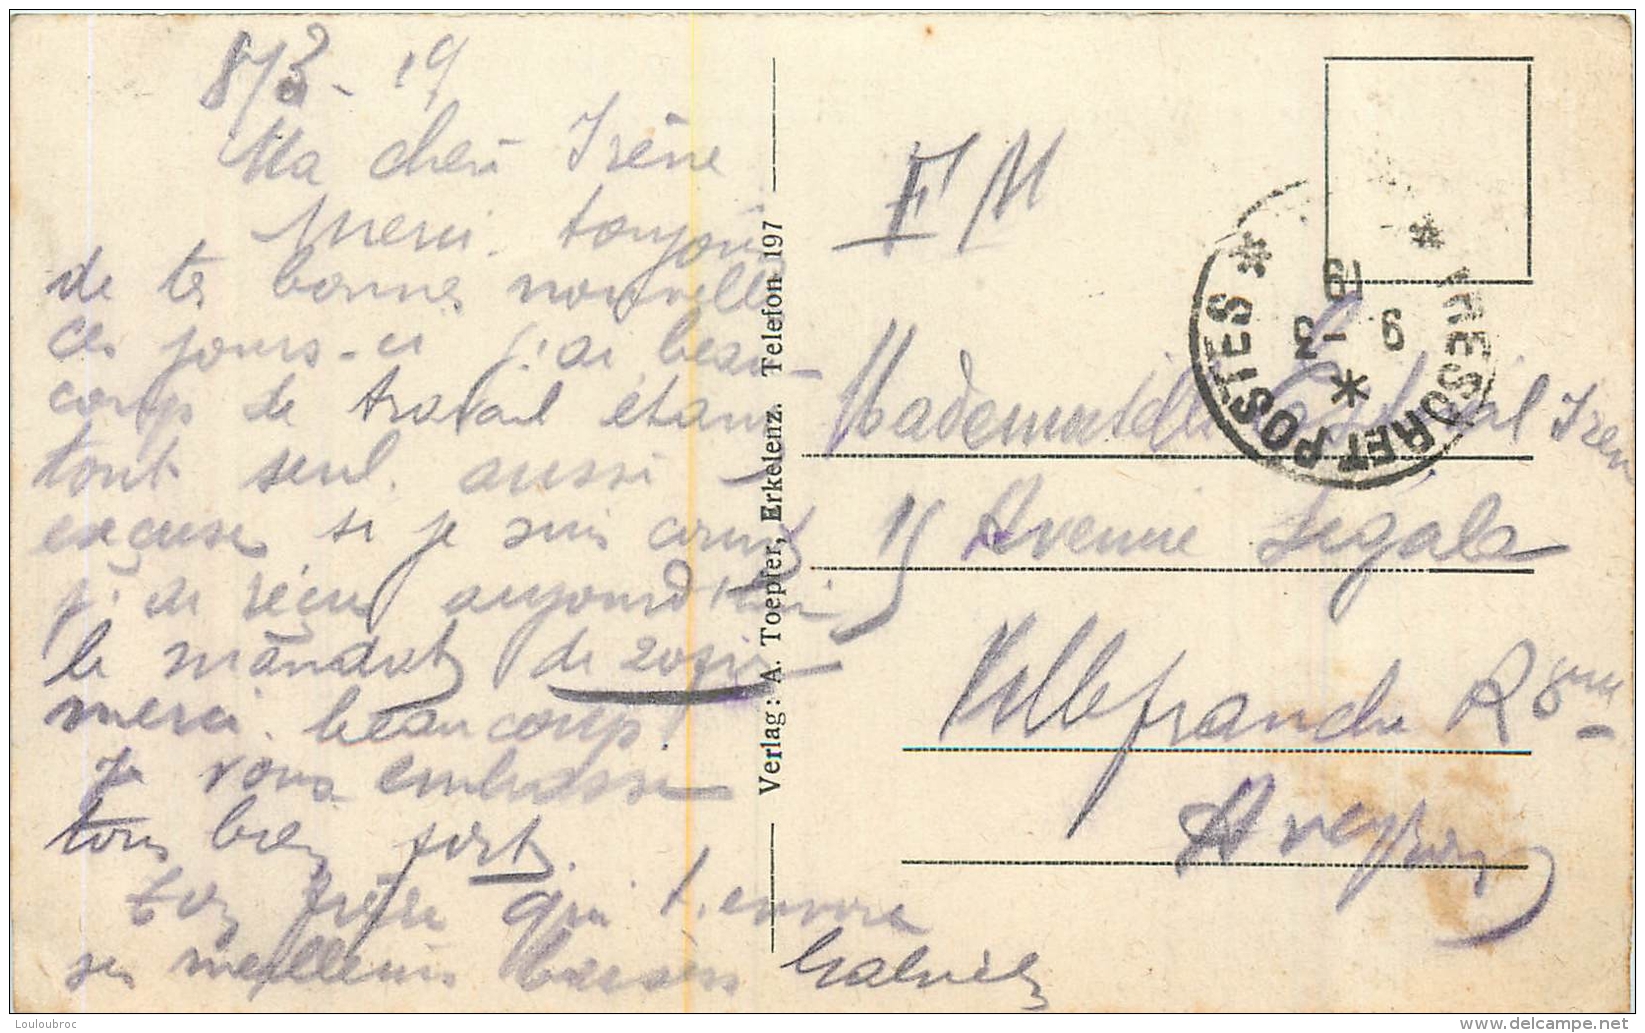 8/3 - 19
Ma cheri Irène
Merci toujours
de tes bonnes nouvelles
Ces jours-ci j'ai beau-
coup de travail étant
tout seul. aussi
excuse si je suis court
j'ai reçu aujourd'hui
le mandat de 20 fr
merci beaucoup!
Je vous embrasse
tous bien fort.
ton frère qui t'envoie
ses meilleurs baisers Gabriel
Verlag: A. Toepfer, Erkelenz. Telefon 197
F M
* TRESOR ET POSTES *
9 - 3
19
*
Mademoiselle Irène
15 Avenue Segala
Villefranche R gue
Aveyron
Louloubroc
delcampe.net